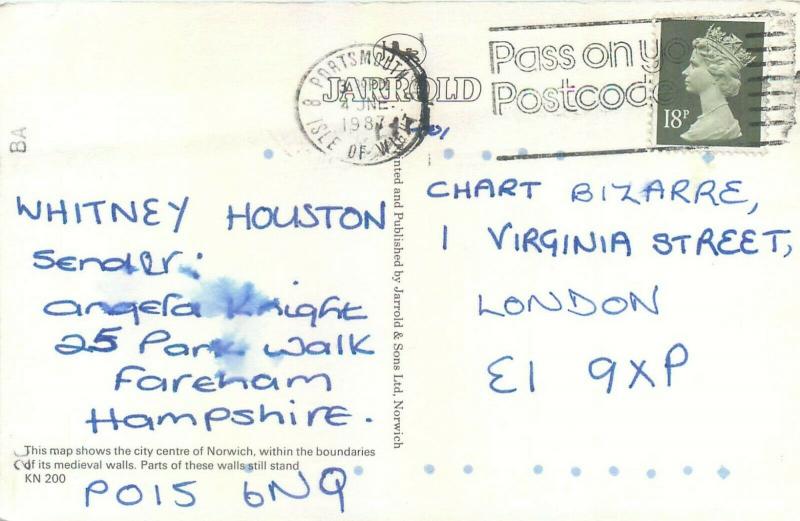 BA
WHITNEY HOUSTON
Sender:
Angela Knight
25 Park Walk
Fareham
Hampshire.
This map shows the city centre of Norwich, within the boundaries
of its medieval walls. Parts of these walls still stand
KN 200
PO15 6NQ
JARROLD
PORTSMOUTH
8
4 JNE
1987
ISLE OF WIGHT
Printed and Published by Jarrold & Sons Ltd, Norwich
Pass on yo
Postcode
18P
CHART BIZARRE,
1 VIRGINIA STREET,
LONDON
E1 9XP